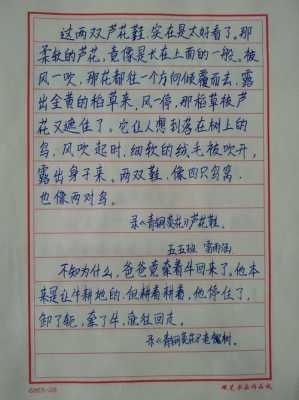 这两双芦花鞋,实在是太好看了。那
柔软的芦花,竟像是长在上面的一般。被
风一吹,那花都往一个方向倾覆而去,露
出金黄的稻草来,风一停,那稻草被芦
花又遮住了。它让人想到落在树上的
鸟,风吹起时,细软的绒毛被吹开,
露出身子来。两双鞋,像四只鸟窝,
也像两对鸟。
录《青铜葵花》芦花鞋。
五五班
不知为什么,爸爸竟牵着牛回来了。他本
来是让牛耕地的,但耕着耕着,他停住了,
卸了轭,牵了牛,就往回走。
录《青铜葵花》老槐树。